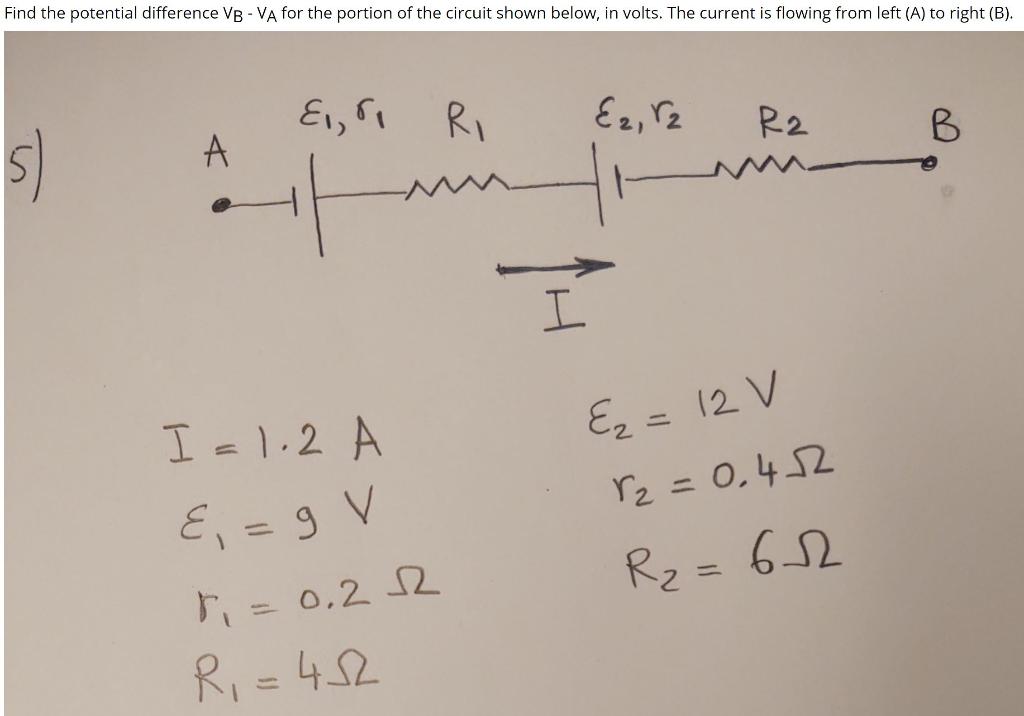 Find the potential difference VB - VA for the portion of the circuit shown below, in volts. The current is flowing from left (A) to right (B).
5)
A
ε1, r1
R1
ε2, r2
R2
B
I
I = 1.2 A
ε1 = 9 V
r1 = 0.2 Ω
R1 = 4Ω
ε2 = 12 V
r2 = 0.4Ω
R2 = 6Ω